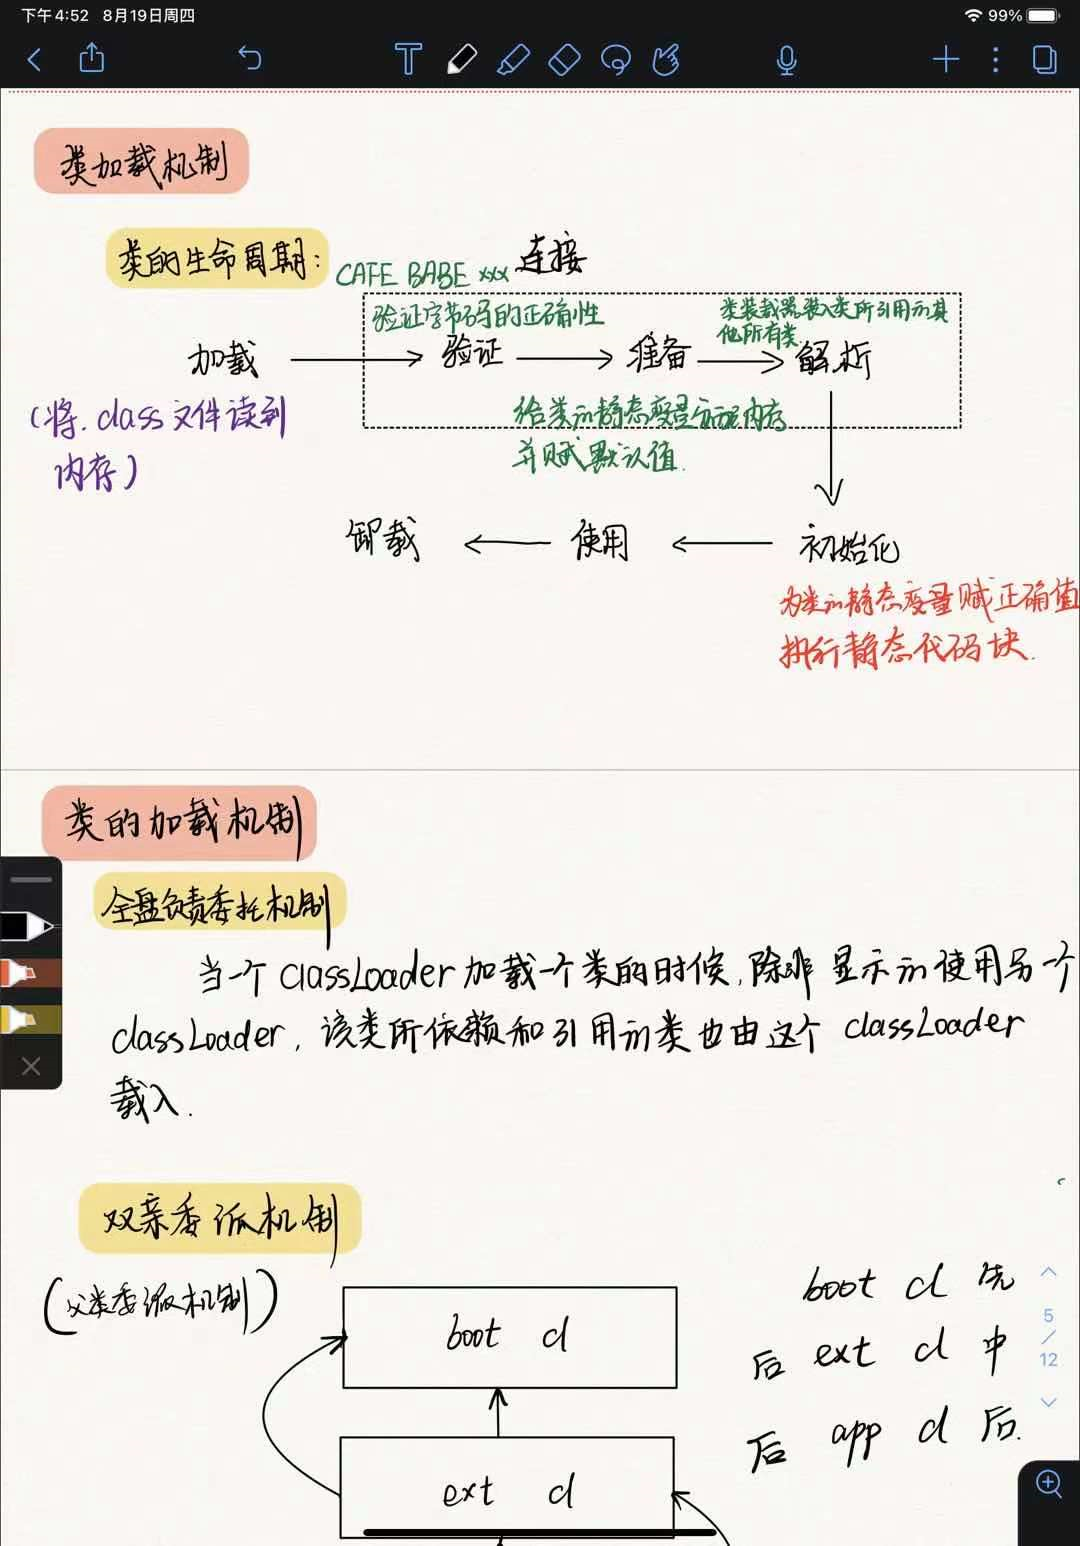 下午4:52 8月19日周四
99%
类加载机制
类的生命周期:
CAFE BABE xxx 连接
验证字节码的正确性
类装载器装入类所引用的其
他所有类.
加载 验证 准备 解析
(将.class文件读到
内存)
给类的静态变量分配内存
并赋默认值.
卸载 使用 初始化
为类的静态变量赋正确值
执行静态代码块.
类的加载机制
全盘负责委托机制
当一个classLoader加载一个类的时候,除非显示的使用另一个
classLoader, 该类所依赖和引用的类也由这个 classLoader
载入.
双亲委派机制
(父类委派机制)
boot cl
ext cl
boot cl 先
后 ext cl 中
后 app cl 后.
5
/
12